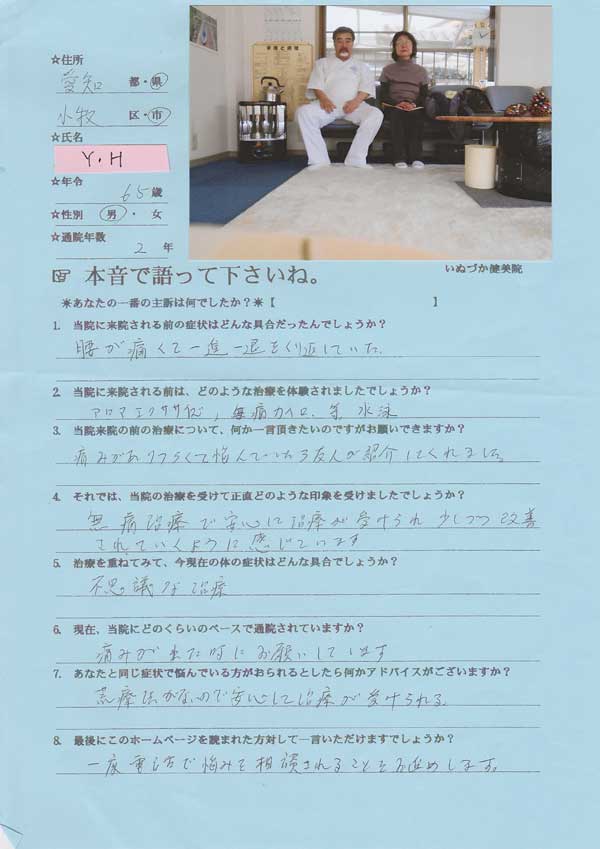 ☆住所
愛知 都・県
小牧 区・市
☆氏名
Y・H
☆年令
65歳
☆性別 男・女
☆通院年数
2年
いぬづか健美院
☞ 本音で語って下さいね。
＊あなたの一番の主訴は何でしたか？＊【 】
1. 当院に来院される前の症状はどんな具合だったんでしょうか？
腰が痛くて一進一退をくり返していた。
2. 当院に来院される前は、どのような治療を体験されましたでしょうか？
アロマエクササイズ, 無痛カイロ、 水泳
3. 当院来院の前の治療について、何か一言頂きたいのですがお願いできますか？
痛みがありつらくて悩んでいたら友人が紹介してくれました。
4. それでは、当院の治療を受けて正直どのような印象を受けましたでしょうか？
無痛治療で安心に治療が受けられ少しづつ改善
されていくように感じています
5. 治療を重ねてみて、今現在の体の症状はどんな具合でしょうか？
不思議な治療
6. 現在、当院にどのくらいのペースで通院されていますか？
痛みが出た時にお願いしています
7. あなたと同じ症状で悩んでいる方がおられるとしたら何かアドバイスがございますか？
荒療法がないので安心して治療が受けられる。
8. 最後にこのホームページを読まれた方対して一言いただけますでしょうか？
一度電話で悩みを相談されることをお進めします。